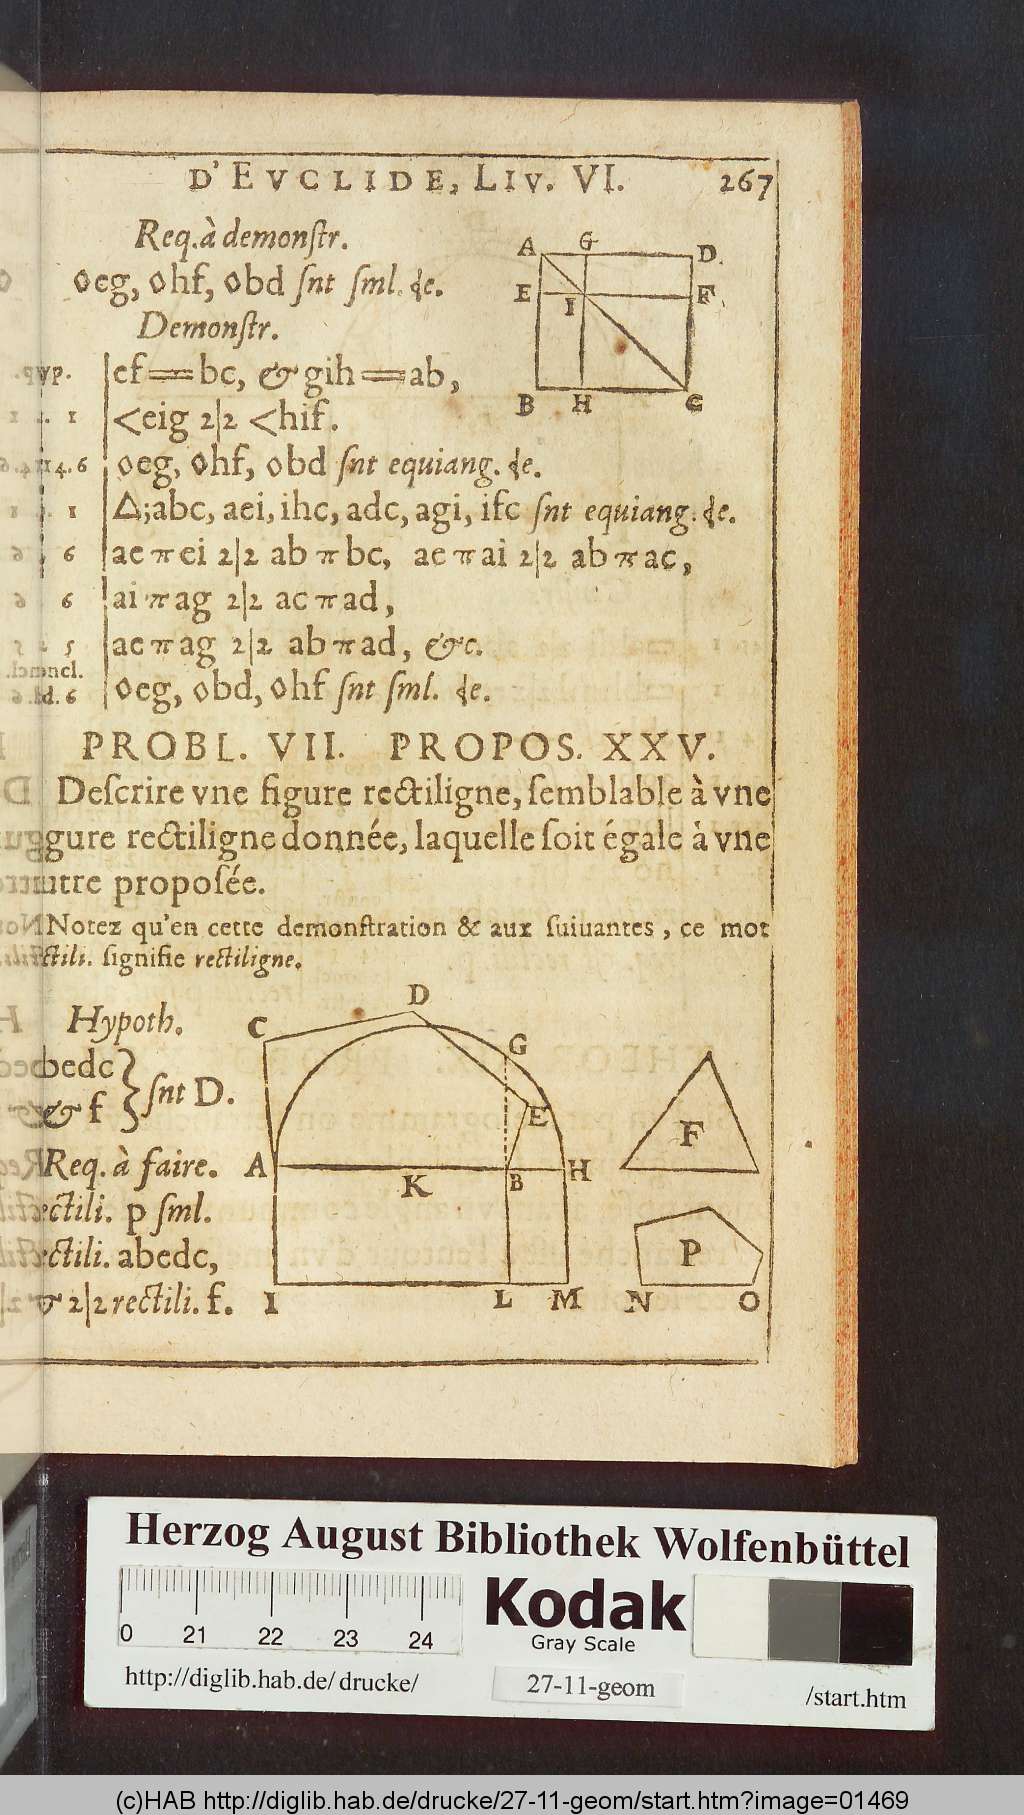 D' EVCLIDE, LIV. VI. 267
Req. à demonſtr.
◊eg, ◊hf, ◊bd ſnt ſml. de.
Demonſtr.
hyp. ef == bc, & gih == ab,
1 <eig 2|2 <hif.
4. 6 ◊eg, ◊hf, ◊bd ſnt equiang. de.
1 Δ; abc, aei, ihc, adc, agi, ifc ſnt equiang. de.
6 ae π ei 2|2 ab π bc, ae π ai 2|2 ab π ac,
6 ai π ag 2|2 ac π ad,
5 ae π ag 2|2 ab π ad, &c.
concl.
d. 6 ◊eg, ◊bd, ◊hf ſnt ſml. de.
A G D
E I F
B H C
PROBL. VII. PROPOS. XXV.
Deſcrire vne figure rectiligne, ſemblable à vne
gure rectiligne donnée, laquelle ſoit égale à vne
utre propoſée.
Notez qu'en cette demonſtration & aux ſuiuantes, ce mot
ctili. ſignifie rectiligne.
Hypoth.
bedc
& f } ſnt D.
Req. à faire.
ectili. p ſml.
ectili. abedc,
& 2|2 rectili. f.
D
C G
E F
A K B H
P
I L M N O
Herzog August Bibliothek Wolfenbüttel
0 21 22 23 24
Kodak
Gray Scale
http://diglib.hab.de/drucke/ 27-11-geom /start.htm
(c)HAB http://diglib.hab.de/drucke/27-11-geom/start.htm?image=01469